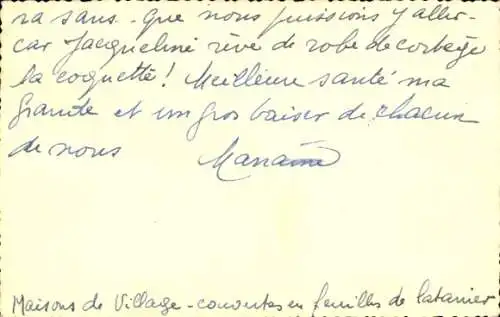 ra sans - que nous puissions y aller -
car Jacqueline rêve de robe de cortège
la coquette ! Meilleure santé ma
grande et un gros baiser de chacun
de nous
Maisons de Village - couvertes en feuilles de latanier